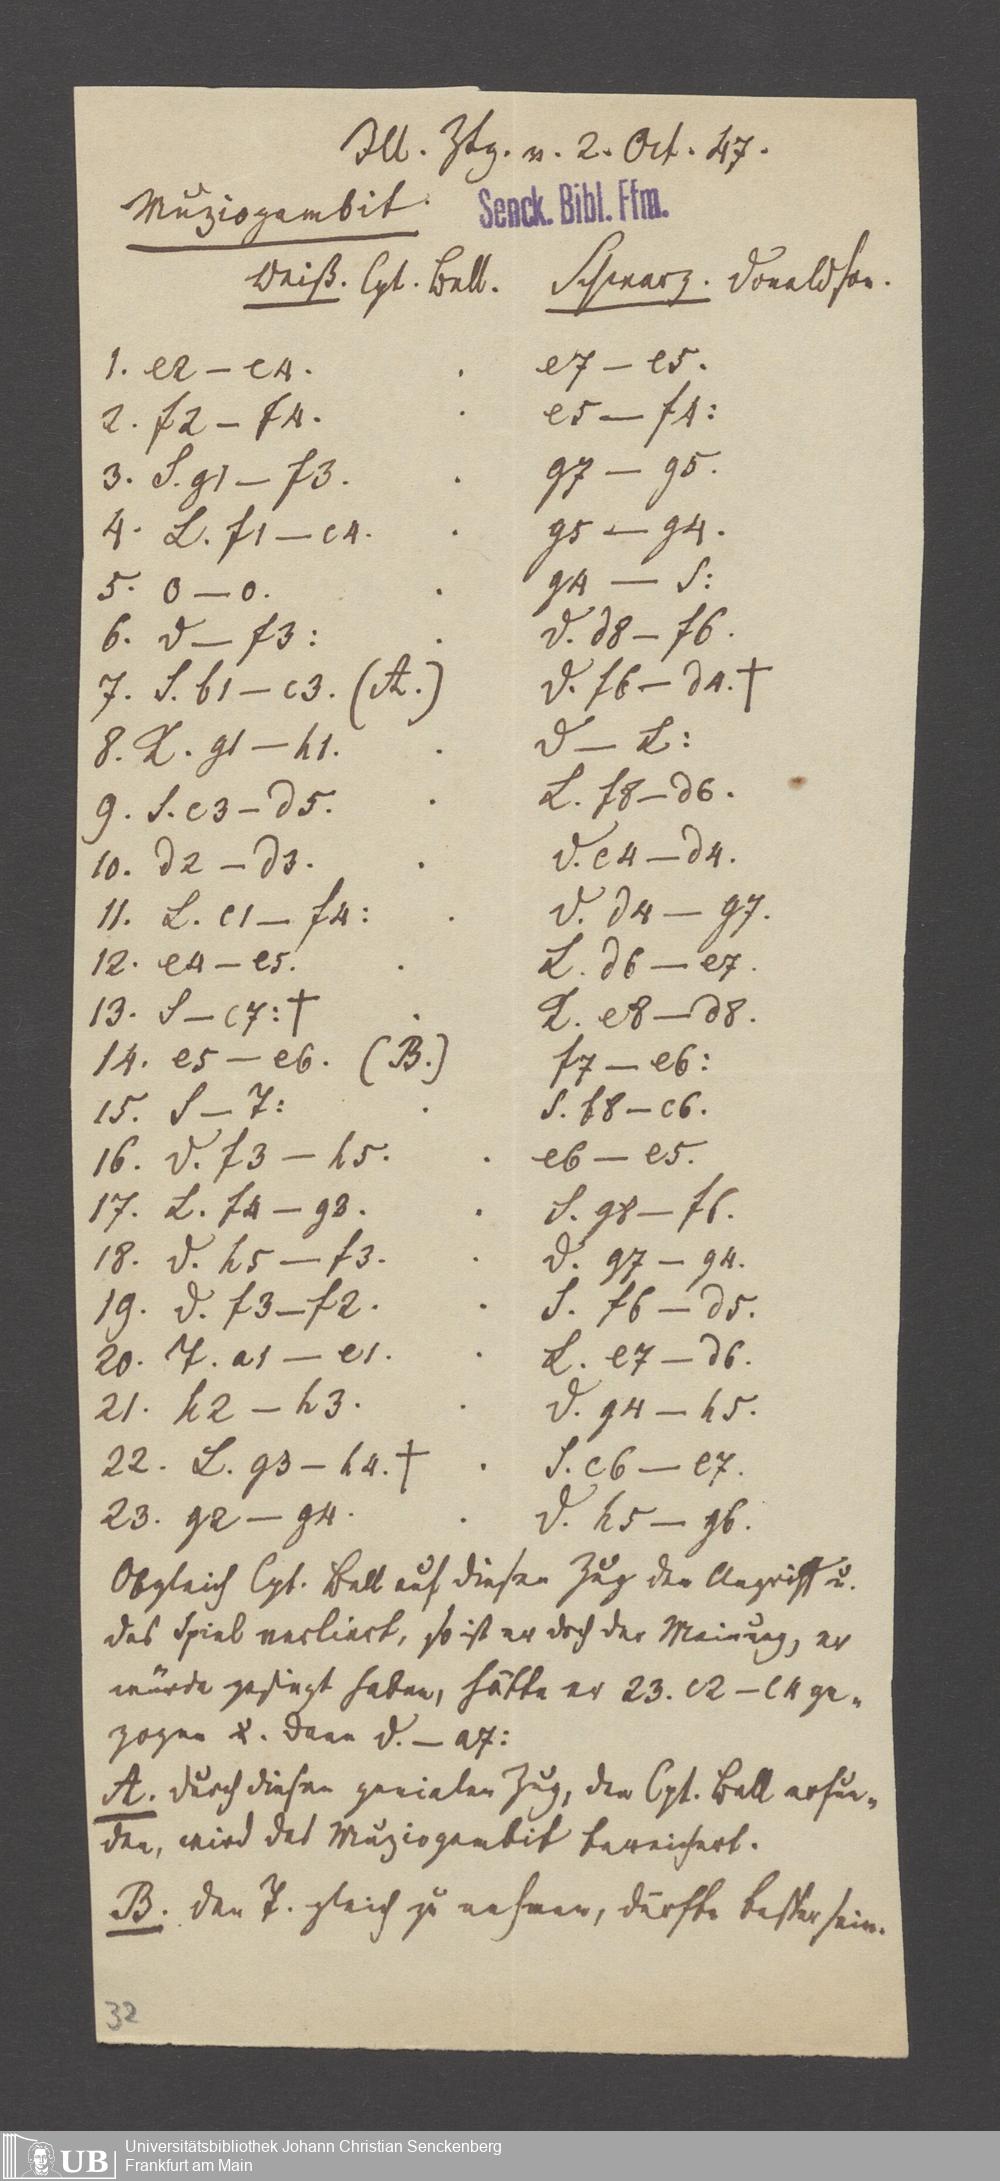 Ill. Ztg. v. 2. Oct. 47.
Muziogambit.
Senck. Bibl. Ffm.
Weiß. Cpt. Bell. Schwarz. Donaldson.
1. e2 — e4. e7 — e5.
2. f2 — f4. e5 — f4:
3. S. g1 — f3. g7 — g5.
4. L. f1 — c4. g5 — g4.
5. o — o. g4 — S:
6. D — f3: D. d8 — f6.
7. S. b1 — c3. (A.) D. f6 — d4. †
8. K. g1 — h1. D — L:
9. S. c3 — d5. L. f8 — d6.
10. d2 — d3. D. c4 — d4.
11. L. c1 — f4: D. d4 — g7.
12. e4 — e5. L. d6 — e7.
13. S — c7: † K. e8 — d8.
14. e5 — e6. (B.) f7 — e6:
15. S — T: S. b8 — c6.
16. D. f3 — h5. e6 — e5.
17. L. f4 — g3. S. g8 — f6.
18. D. h5 — f3. D. g7 — g4.
19. D. f3 — f2. S. f6 — d5.
20. T. a1 — e1. L. e7 — d6.
21. h2 — h3. D. g4 — h5.
22. L. g3 — h4. † S. c6 — e7.
23. g2 — g4. D. h5 — g6.
Obgleich Cpt. Bell auf diesen Zug den Angriff u.
das Spiel verliert, so ist er doch der Meinung, er
würde gesiegt haben, hätte er 23. c2 — c4 ge-
zogen u. dann D. — a7:
A. Durch diesen genialen Zug, den Cpt. Bell erfun-
den, wird das Muziogambit bereichert.
B. Den T. gleich zu nehmen, dürfte besser sein.
32
UB
Universitätsbibliothek Johann Christian Senckenberg
Frankfurt am Main